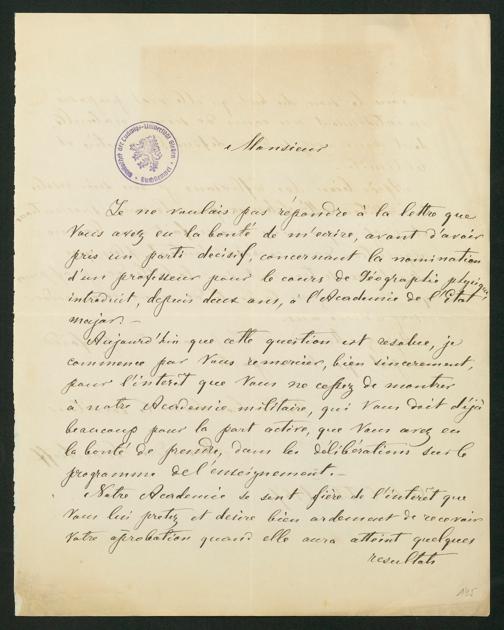 Monsieur
Je ne voulais pas répondre à la lettre que
Vous avez eu la bonté de m'ecrire, avant d'avoir
pris un parti decisif, concernant la nomination
d'un professeur pour le cours de Géographie physique,
introduit, depuis deux ans, à l'Academie de l'Etat
major.—
Aujourd'hui que cette question est resolue, je
commence par Vous remercier, bien sincerement,
pour l'interêt que Vous ne cessez de montrer
à notre Academie militaire, qui Vous doit déjà
beaucoup pour la part active, que Vous avez eu
la bonté de prendre, dans les délibérations sur le
programme de l'enseignement.—
Notre Academie se sent fière de l'interêt que
Vous lui portez et desire bien ardemment de recevoir
Votre aprobation quand elle aura atteint quelques
resultats
145